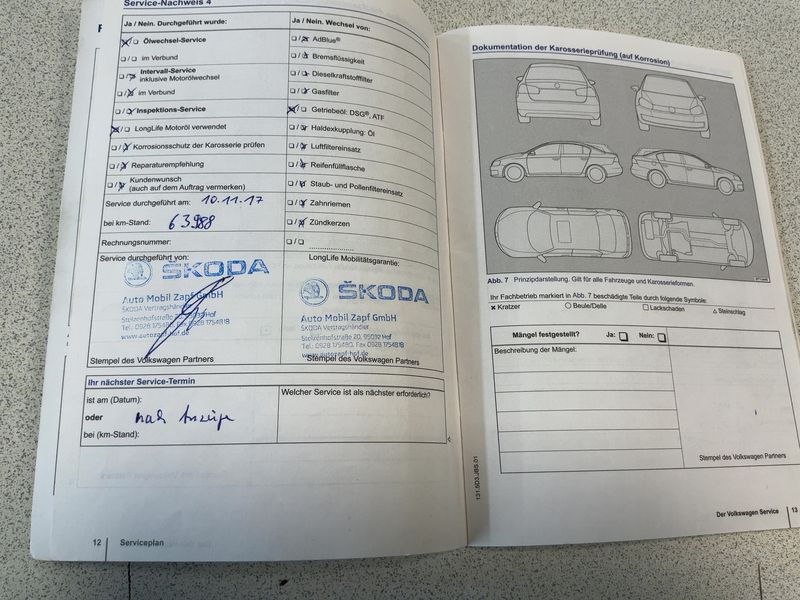 Service-Nachweis 4
Ja / Nein. Durchgeführt wurde:
Ölwechsel-Service
im Verbund
Intervall-Service
inklusive Motorölwechsel
im Verbund
Inspektions-Service
LongLife Motoröl verwendet
Korrosionsschutz der Karosserie prüfen
Reparaturempfehlung
Kundenwunsch
(auch auf dem Auftrag vermerken)
Service durchgeführt am: 10.11.17
bei km-Stand: 63988
Rechnungsnummer:
Ja / Nein. Wechsel von:
AdBlue®
Bremsflüssigkeit
Dieselkraftstofffilter
Gasfilter
Getriebeöl: DSG®, ATF
Haldexkupplung: Öl
Luftfiltereinsatz
Reifenfüllflasche
Staub- und Pollenfiltereinsatz
Zahnriemen
Zündkerzen
Service durchgeführt von:
ŠKODA
Auto Mobil Zapf GmbH
ŠKODA Vertragshändler
Stelzenhofstraße 20, 95032 Hof
Tel. 0928 175480, Fax 0928 1754818
www.autozapf-hof.de
Stempel des Volkswagen Partners
LongLife Mobilitätsgarantie:
ŠKODA
Auto Mobil Zapf GmbH
ŠKODA Vertragshändler
Stelzenhofstraße 20, 95032 Hof
Tel.: 0928 175480, Fax 0928 1754818
www.autozapf-hof.de
Stempel des Volkswagen Partners
Ihr nächster Service-Termin
ist am (Datum):
oder nach Anzeige
bei (km-Stand):
Welcher Service ist als nächster erforderlich?
12 Serviceplan
Dokumentation der Karosserieprüfung (auf Korrosion)
Abb. 7 Prinzipdarstellung. Gilt für alle Fahrzeuge und Karosserieformen.
Ihr Fachbetrieb markiert in Abb. 7 beschädigte Teile durch folgende Symbole:
× Kratzer ○ Beule/Delle □ Lackschaden △ Steinschlag
Mängel festgestellt? Ja: Nein:
Beschreibung der Mängel:
Stempel des Volkswagen Partners
131.5D3.JBS.01
Der Volkswagen Service 13